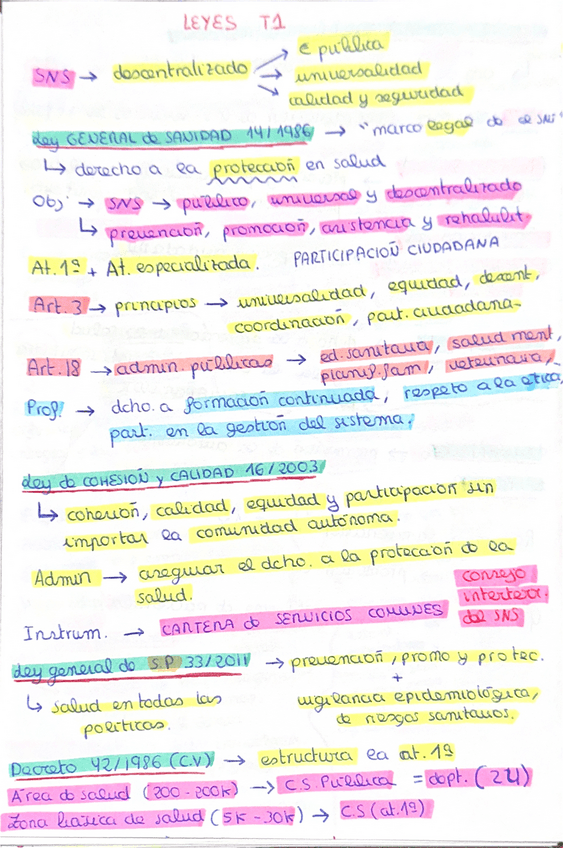 LEYES T1
€ pública
SNS → descentralizado → universalidad
calidad y seguridad
Ley GENERAL de SANIDAD 14/1986 → "marco legal de el SNS"
↳ derecho a la protección en salud
Obj: → SNS → público, universal y descentralizado
↳ prevención, promoción, asistencia y rehabilit.
At. 1ª + At. especializada. PARTICIPACIÓN CIUDADANA
Art. 3 → principios → universalidad, equidad, descent,
coordinación, part. ciudadana
Art. 18 → admin. públicas → ed. sanitaria, salud ment,
planif. fam, veterinaria,
Prof. → dcho. a formación continuada, respeto a la ética,
part. en la gestión del sistema.
Ley de COHESIÓN y CALIDAD 16/2003
↳ cohesión, calidad, equidad y participación sin
importar la comunidad autónoma.
Admin → asegurar el dcho. a la protección de la
salud.
consejo
interterr.
del SNS
Instrum. → CARTERA de SERVICIOS COMUNES
Ley general de S.P 33/2011 → prevención, promo y protec.
+
↳ salud en todas las
políticas.
vigilancia epidemiológica,
de riesgos sanitarios.
Decreto 42/1986 (C.V) → estructura la at. 1ª
Área de salud (200-200k) → C.S. Pública = dept. (24)
Zona básica de salud (5k-30k) → C.S (at. 1ª)